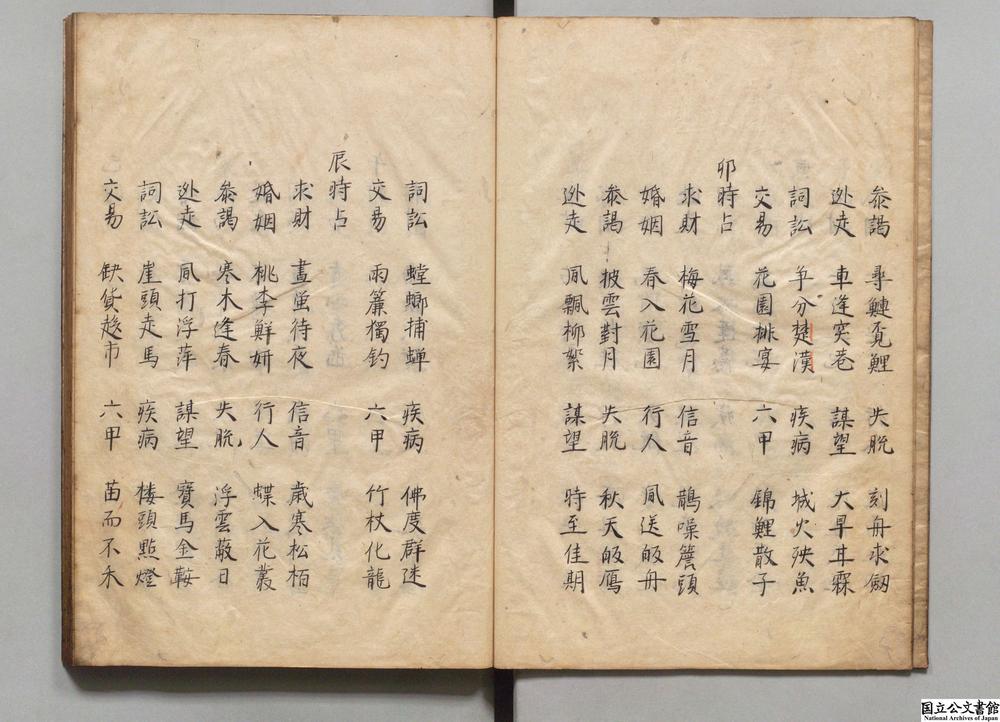 叅謁 尋鰱覓鯉 失脫 刻舟求劒
逃走 車逢窄巷 謀望 大旱甘霖
詞訟 爭分楚漢 疾病 城火殃魚
交易 花園排宴 六甲 錦鯉散子
卯時占
求財 梅花雪月 信音 鵲噪簷頭
婚姻 春入花園 行人 風送皈舟
叅謁 披雲對月 失脫 秋天皈鴈
逃走 風飄柳絮 謀望 時至佳期
詞訟 螳螂捕蟬 疾病 佛度群迷
交易 雨簾獨釣 六甲 竹杖化龍
辰時占
求財 晝螢待夜 信音 歲寒松栢
婚姻 桃李鮮妍 行人 蝶入花叢
叅謁 寒木逢春 失脫 浮雲蔽日
逃走 風打浮萍 謀望 寶馬金鞍
詞訟 崖頭走馬 疾病 楼頭點燈
交易 缺貨趂市 六甲 苗而不禾
国立公文書館
National Archives of Japan